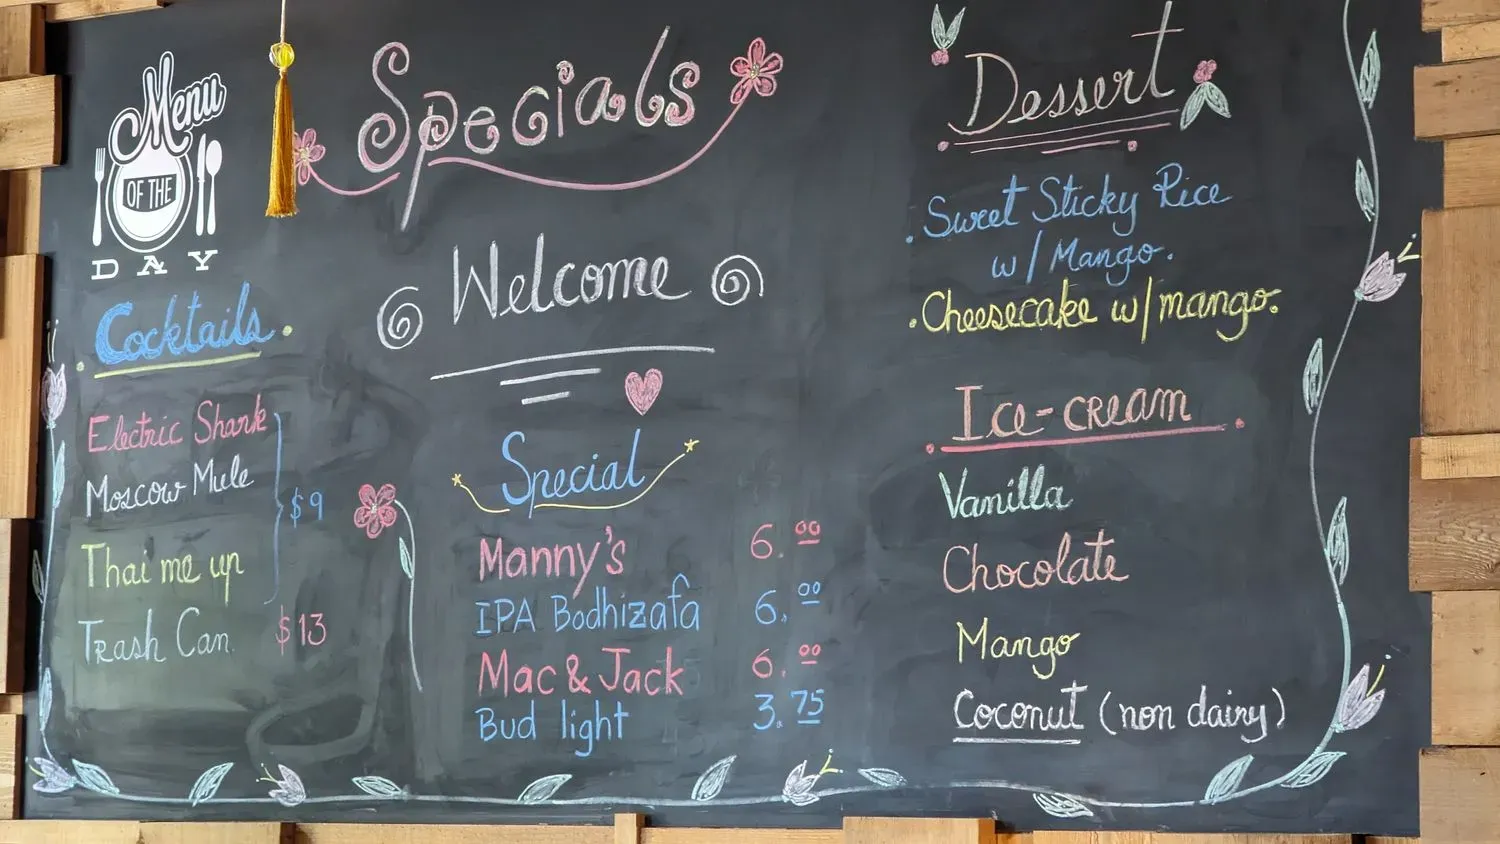 Menu
OF THE
DAY
Cocktails
Electric Shark
Moscow Mule
$9
Thai me up
Trash Can $13
Specials
Welcome
Special
Manny's 6.00
IPA Bodhizafa 6.00
Mac & Jack 6.00
Bud light 3.75
Dessert
. Sweet Sticky Rice
w/ Mango.
. Cheesecake w/ mango.
Ice-cream
Vanilla
Chocolate
Mango
Coconut (non dairy)